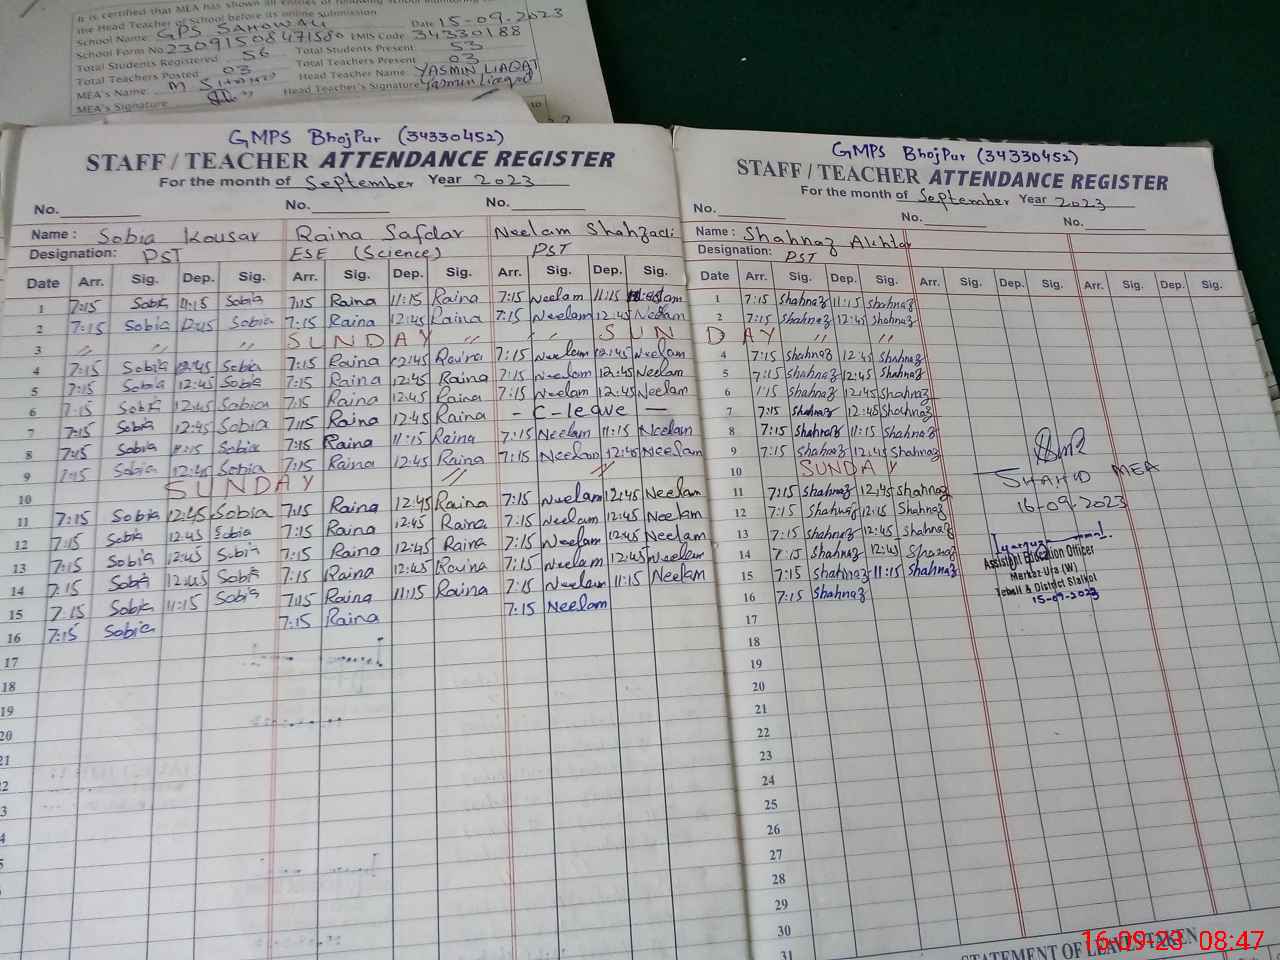 It is certified that MEA has shown all entries of following school monitoring
the Head Teacher of School before its online submission.
School Name: GPS SAHOWALI Date 15-09-2023
School Form No EMIS Code 34330188
Total Students Registered 56 Total Students Present 53
Total Teachers Posted 03 Total Teachers Present 03
MEA's Name: M Head Teacher Name: YASMIN LIAQAT
MEA's Signature Head Teacher's Signature Yasmin Liaqat
GMPS BhojPur (34330452)
STAFF / TEACHER ATTENDANCE REGISTER
For the month of September Year 2023
No. No. No.
Name: Sobia Kousar Raina Safdar Neelam Shahzadi
Designation: PST ESE (Science) PST
Date Arr. Sig. Dep. Sig. Arr. Sig. Dep. Sig. Arr. Sig. Dep. Sig.
1 7:15 Sobia 11:15 Sobia 7:15 Raina 11:15 Raina 7:15 Neelam 11:15 Neelam
2 7:15 Sobia 12:45 Sobia 7:15 Raina 12:45 Raina 7:15 Neelam 12:45 Neelam
3 " " " SUNDAY " " SUN
4 7:15 Sobia 12:45 Sobia 7:15 Raina 12:45 Raina 7:15 Neelam 12:45 Neelam
5 7:15 Sobia 12:45 Sobia 7:15 Raina 12:45 Raina 7:15 Neelam 12:45 Neelam
6 7:15 Sobia 12:45 Sobia 7:15 Raina 12:45 Raina 7:15 Neelam 12:45 Neelam
7 7:15 Sobia 12:45 Sobia 7:15 Raina 12:45 Raina - C-leave -
8 7:15 Sobia 11:15 Sobia 7:15 Raina 11:15 Raina 7:15 Neelam 11:15 Neelam
9 7:15 Sobia 12:45 Sobia 7:15 Raina 12:45 Raina 7:15 Neelam 12:45 Neelam
10 SUNDAY " "
11 7:15 Sobia 12:45 Sobia 7:15 Raina 12:45 Raina 7:15 Neelam 12:45 Neelam
12 7:15 Sobia 12:45 Sobia 7:15 Raina 12:45 Raina 7:15 Neelam 12:45 Neelam
13 7:15 Sobia 12:45 Sobia 7:15 Raina 12:45 Raina 7:15 Neelam 12:45 Neelam
14 7:15 Sobia 12:45 Sobia 7:15 Raina 12:45 Raina 7:15 Neelam 12:45 Neelam
15 7:15 Sobia 11:15 Sobia 7:15 Raina 11:15 Raina 7:15 Neelam 11:15 Neelam
16 7:15 Sobia 7:15 Raina 7:15 Neelam
17
18
19
20
21
22
3
4
5
GMPS BhojPur (34330452)
STAFF / TEACHER ATTENDANCE REGISTER
For the month of September Year 2023
No. No. No.
Name: Shahnaz Akhtar
Designation: PST
Date Arr. Sig. Dep. Sig. Arr. Sig. Dep. Sig. Arr. Sig. Dep. Sig.
1 7:15 Shahnaz 11:15 Shahnaz
2 7:15 Shahnaz 12:45 Shahnaz
DAY " "
4 7:15 Shahnaz 12:45 Shahnaz
5 7:15 Shahnaz 12:45 Shahnaz
6 7:15 Shahnaz 12:45 Shahnaz
7 7:15 Shahnaz 12:45 Shahnaz
8 7:15 Shahnaz 11:15 Shahnaz
9 7:15 Shahnaz 12:45 Shahnaz
10 SUNDAY
11 7:15 Shahnaz 12:45 Shahnaz
12 7:15 Shahnaz 12:15 Shahnaz
13 7:15 Shahnaz 12:45 Shahnaz
14 7:15 Shahnaz 12:45 Shahnaz
15 7:15 Shahnaz 11:15 Shahnaz
16 7:15 Shahnaz
17
18
19
20
21
22
23
24
25
26
27
28
29
30
31
SHAHID MEA
16-09-2023
Assistant Education Officer
Markaz-Ura (W)
Tehsil & District Sialkot
15-09-2023
STATEMENT OF LEAVE TAKEN
16-09-23 08:47